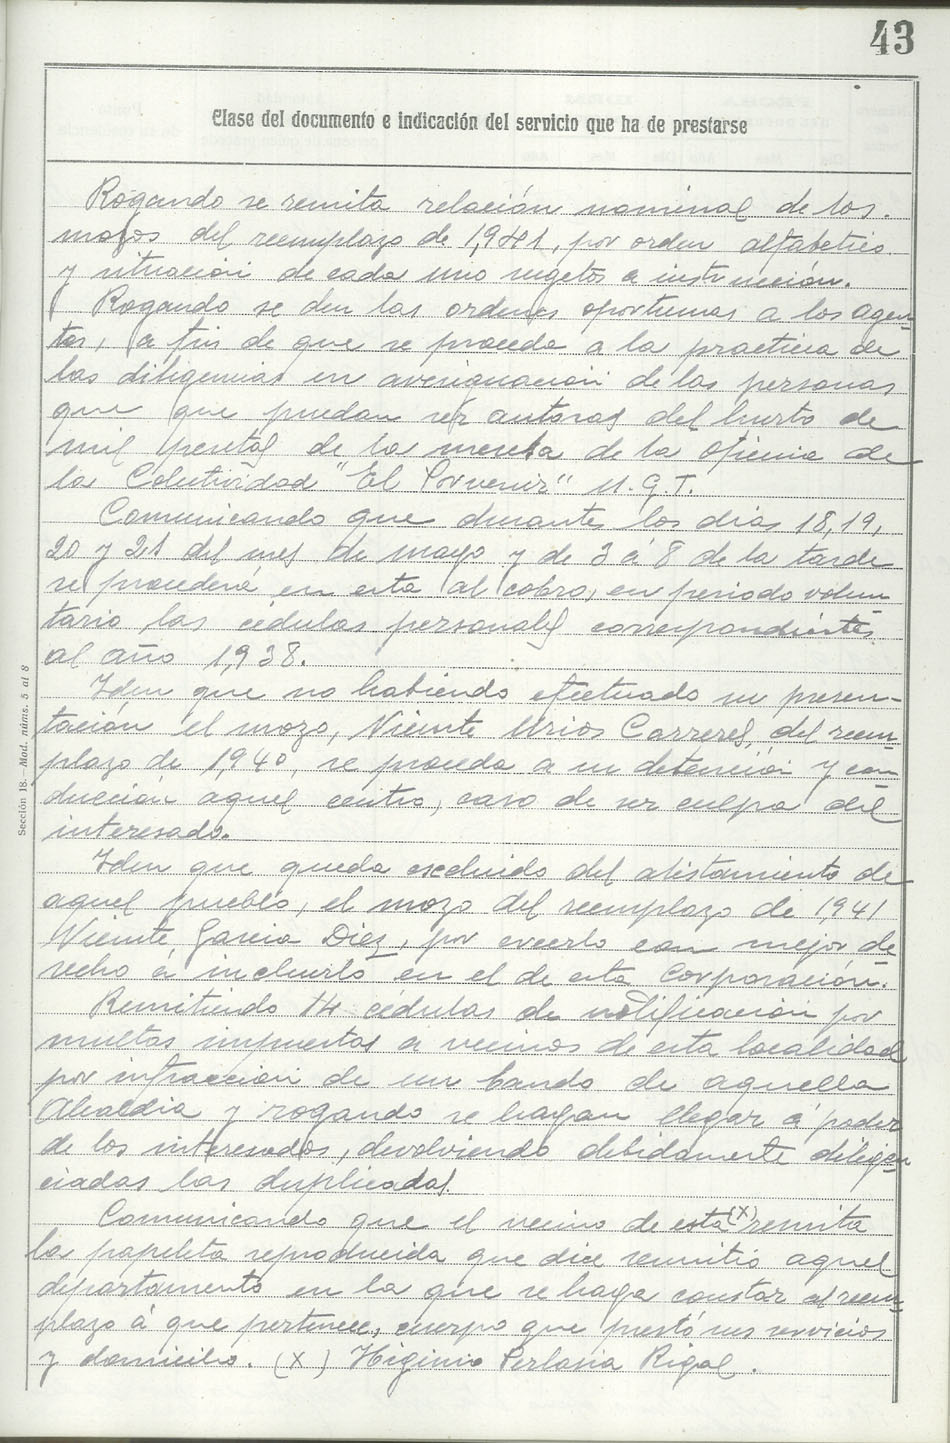 43
Clase del documento e indicación del servicio que ha de prestarse
Rogando se remita relación nominal de los
mozos del reemplazo de 1,941, por orden alfabetico
y situación de cada uno sugetos a instrucción.
Rogando se den las ordenes oportunas a los agen-
tes, a fin de que se proceda a la practica de
las diligencias en averiguación de las personas
que que puedan ser autoras del hurto de
mil pesetas de la meseta de la Oficina de
la Colectividad "El Porvenir" U.G.T.
Comunicando que durante los dias 18, 19,
20 y 21 del mes de mayo y de 3 á 8 de la tarde
se procederá en esta al cobro, en periodo volun
tario las cédulas personales correspondientes
al año 1,938.
Idem que no habiendo efectuado su presen-
tación el mozo, Vicente Urios Carreres, del reem-
plazo de 1,940, se proceda a su detención y con
ducción aquel centro, caso de ser culpa del
interesado.
Idem que queda excluido del alistamiento de
aquel pueblo, el mozo del reemplazo de 1941
Vicente Garcia Diez, por creerlo con mejor de-
recho á incluirlo en el de esta Corporación.
Remitiendo 14 cédulas de notificación por
multas impuestas a vecinos de esta localidad
por infracción de un bando de aquella
Alcaldia y rogando se hagan llegar á poder
de los interesados, devolviendo debidamente diligen
ciadas los duplicados.
Comunicando que el vecino de esta (X) remita
la papeleta reproducida que dice remitió aquel
departamento en la que se haga constar el reem-
plazo á que pertenece, cuerpo que prestó sus servicios
y domicilio. (X) Higinio Perlasia Rigal.
Sección 18.—Mod. núms. 5 al 8